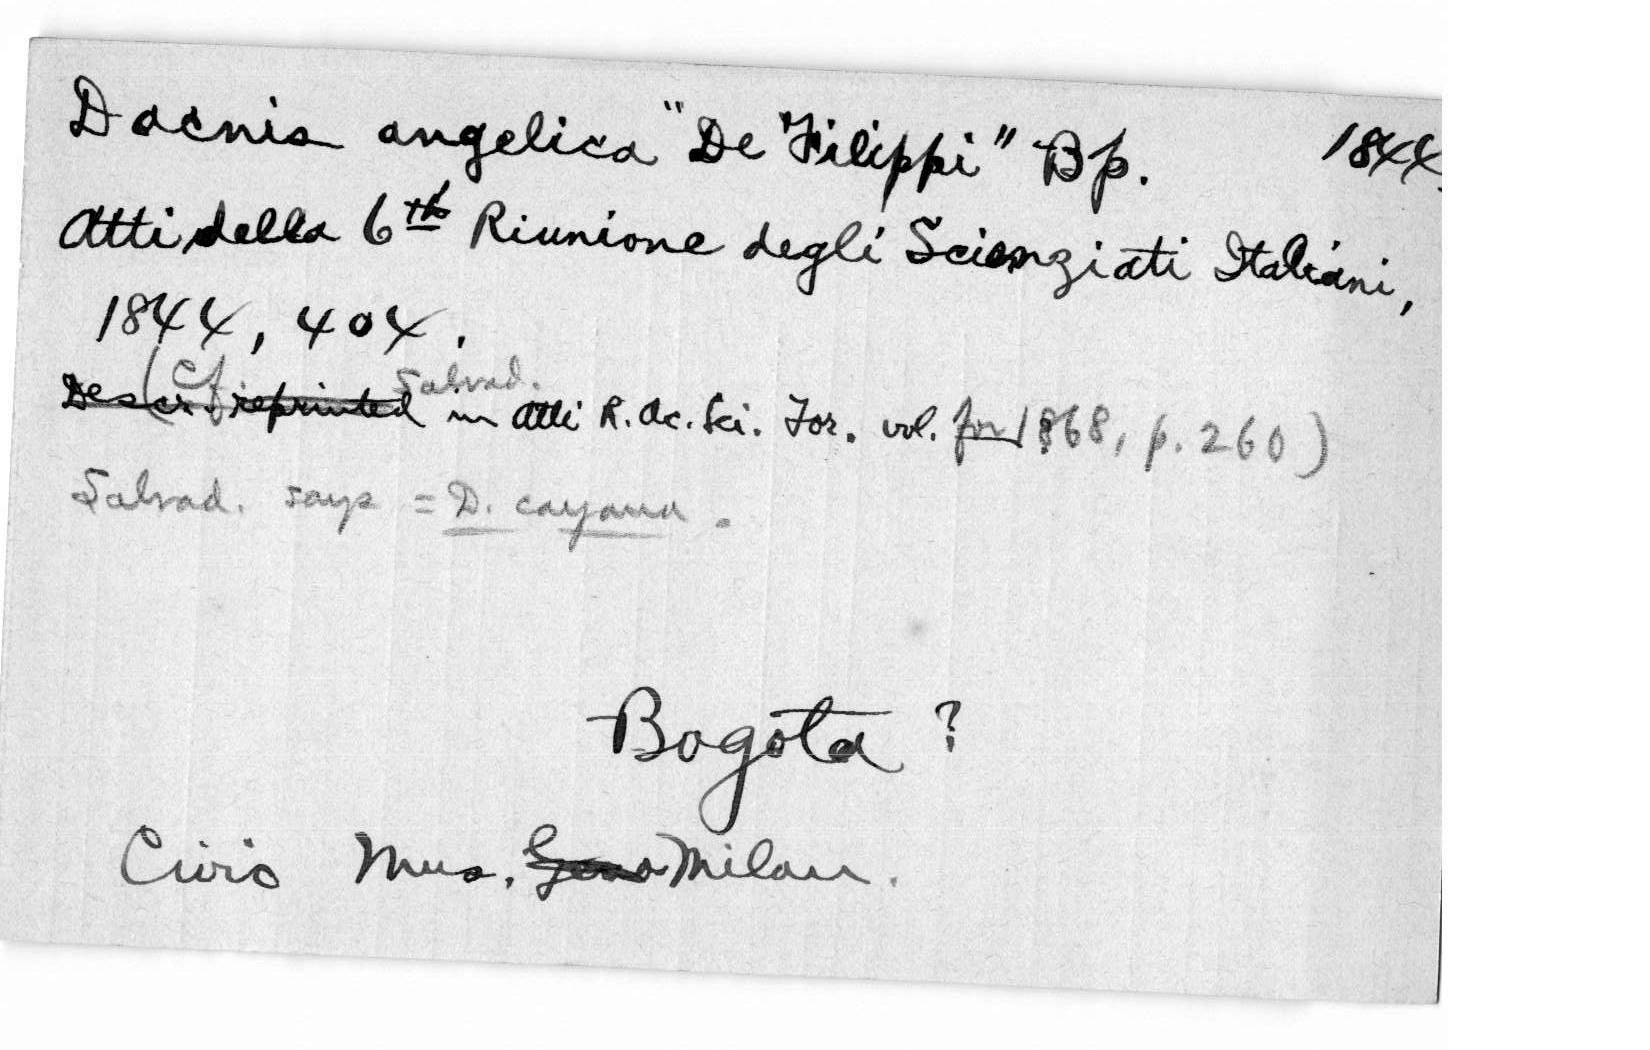 Dacnis angelica "De Filippi" Bp. 1844.
Atti della 6th Riunione degli Scienziati Italiani,
1844, 404.
(Cf. Salvad.
Descr. reprinted in Atti R. Ac. Sci. Tor. vol. for 1868, p. 260)
Salvad. says = D. cayana.
Bogota ?
Civic Mus. Milan.